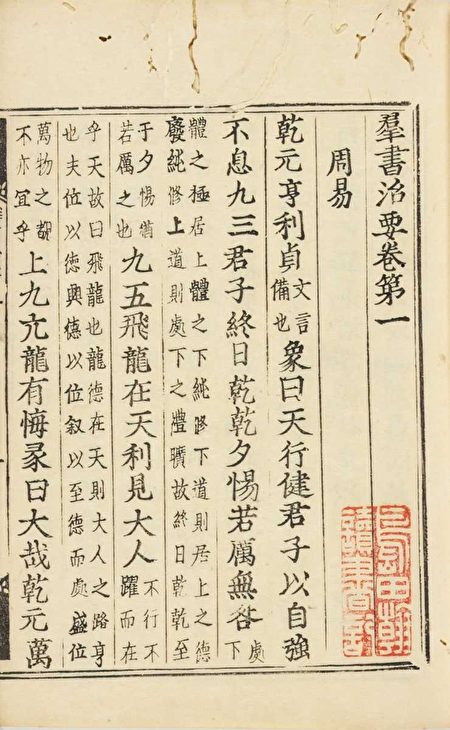 羣書治要卷第一
周易
乾元亨利貞文言備也象曰天行健君子以自強
不息九三君子終日乾乾夕惕若厲無咎處下
體之極居上體之下純修下道則居上之德
廢純修上道則處下之禮曠故終日乾乾至
于夕惕猶若厲之也九五飛龍在天利見大人不行不躍而在
乎天故曰飛龍也龍德在天則大人之路亨
也夫位以德興德以位叙以至德而處盛位
萬物之覩不亦宜乎上九亢龍有悔彖曰大哉乾元萬